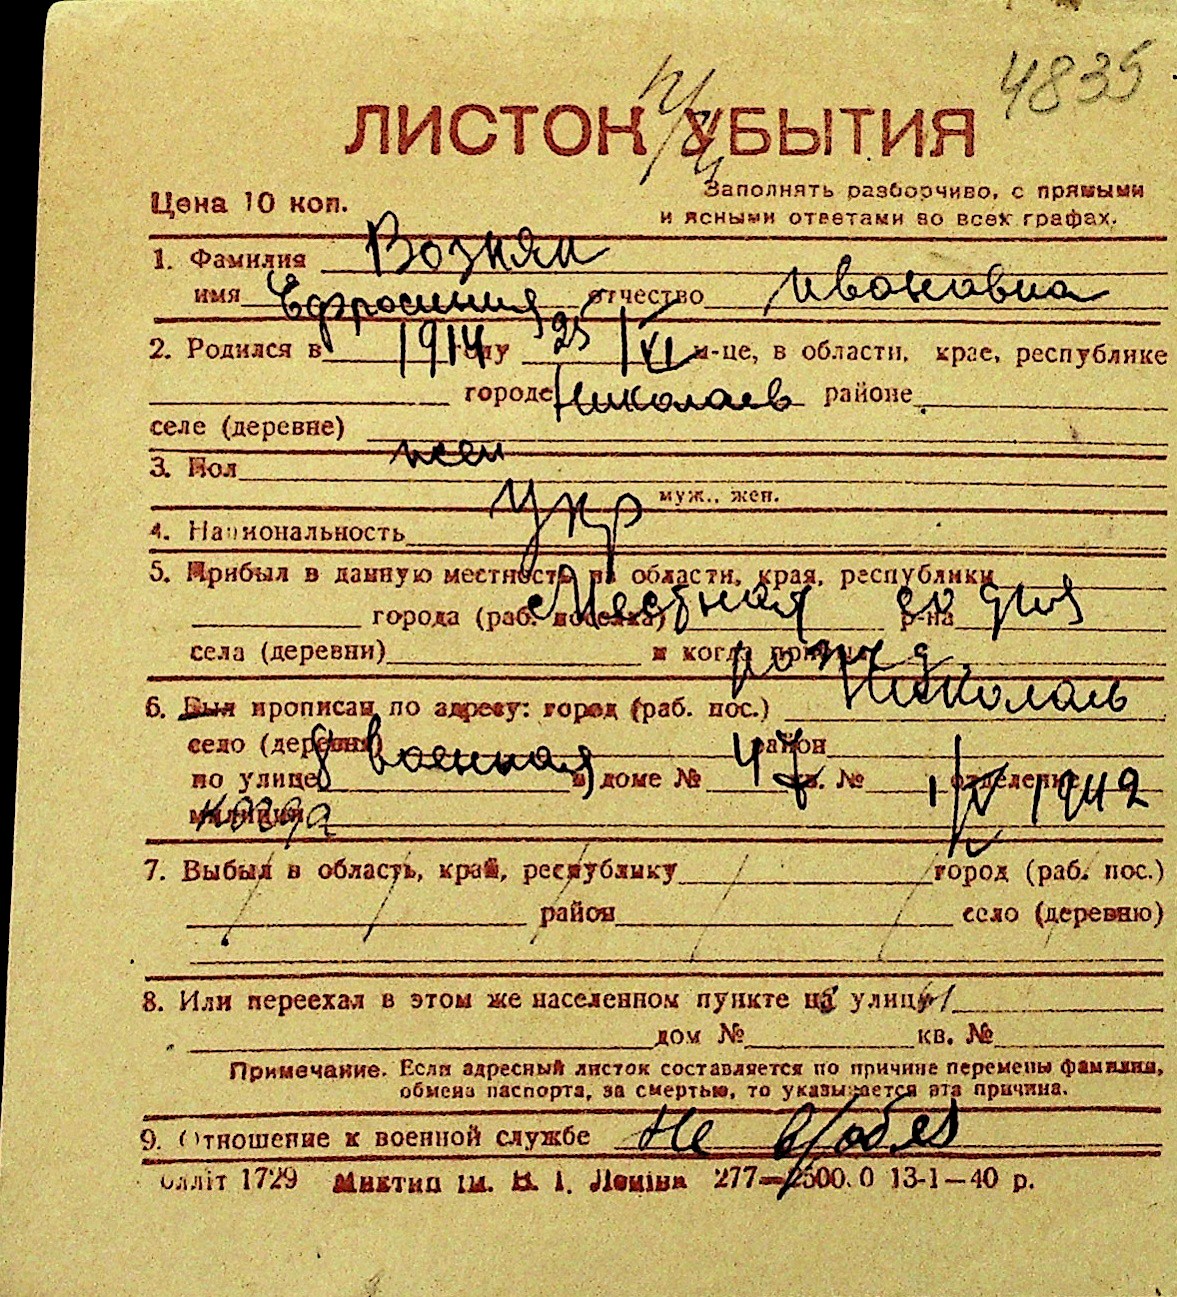 4835
ЛИСТОК УБЫТИЯ
Цена 10 коп.
Заполнять разборчиво, с прямыми
и ясными ответами во всех графах.
1. Фамилия Возняк
имя Ефросиния отчество Ивановна
2. Родился в 1914 году 25/VI м-це, в области, крае, республике
городе Николаев районе
селе (деревне)
3. Пол жен
муж., жен.
4. Национальность Укр
5. Прибыл в данную местность из области, края, республики
города (раб. поселка) Местная со дня р-на
села (деревни) и когда прибыл рожд.
6. Был прописан по адресу: город (раб. пос.) Николаев
село (деревня) район
по улице Военная в доме № 47 кв. № отделение 1/IV 1942
милиции когда
7. Выбыл в область, край, республику город (раб. пос.)
район село (деревню)
8. Или переехал в этом же населенном пункте на улицу
дом № кв. №
Примечание. Если адресный листок составляется по причине перемены фамилии,
обмена паспорта, за смертью, то указывается эта причина.
9. Отношение к военной службе Не в/обяз
олліт 1729 Миктип ім. В. І. Леніна 277—2500.0 13-1—40 р.